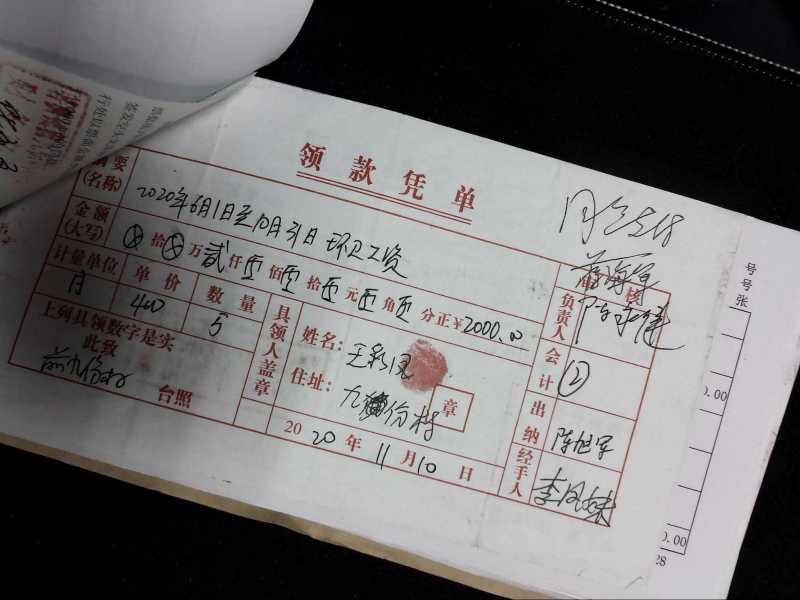 领款凭单
摘要(名称) 2020年6月1日至10月31日 环卫工资
金额(大写) 拾 万 贰 仟 佰 拾 元 角 分正 ¥2000.00
计量单位 单价 数量
月 400 5
上列具领数字是实
此致
前九份村
台照
具领人盖章
姓名: 王彩凤
住址: 九份村
章
2020年11月10日
审核
负责人
会计
出纳 陈旭军
经手人 李凤妹
号
号
张
0.00
0.00
28